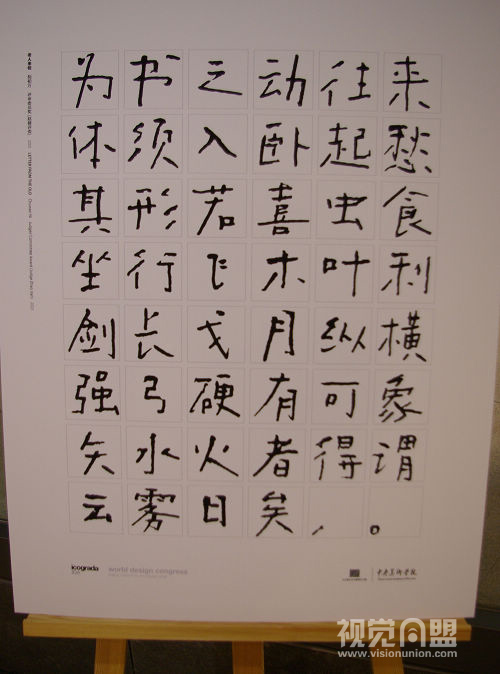 为书之动往来
体须入卧起愁
其形若喜虫食
坐行飞木叶利
剑长戈月纵横
强弓硬有可象
矢水火者得谓
云雾日矣，。
icograda
world design congress
中央美术学院
视觉同盟
www.visionunion.com